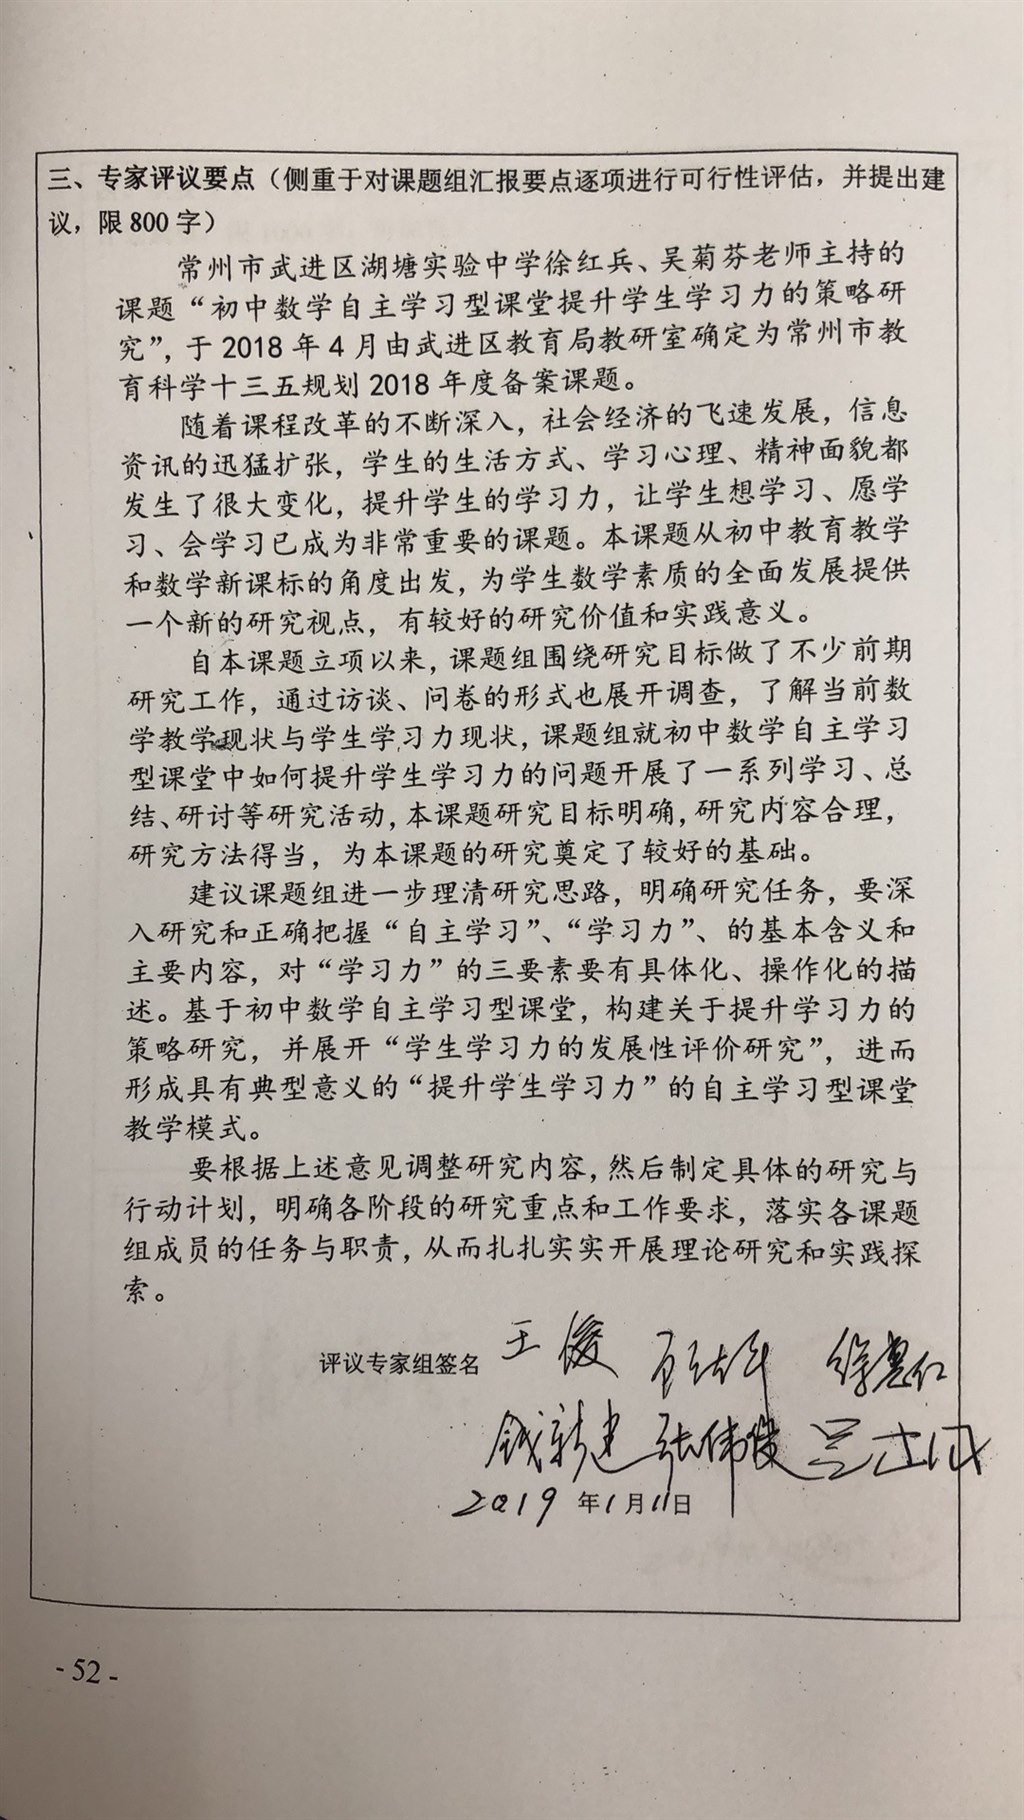 三、专家评议要点（侧重于对课题组汇报要点逐项进行可行性评估，并提出建
议，限 800 字）
常州市武进区湖塘实验中学徐红兵、吴菊芬老师主持的
课题“初中数学自主学习型课堂提升学生学习力的策略研
究”，于 2018 年 4 月由武进区教育局教研室确定为常州市教
育科学十三五规划 2018 年度备案课题。
随着课程改革的不断深入，社会经济的飞速发展，信息
资讯的迅猛扩张，学生的生活方式、学习心理、精神面貌都
发生了很大变化，提升学生的学习力，让学生想学习、愿学
习、会学习已成为非常重要的课题。本课题从初中教育教学
和数学新课标的角度出发，为学生数学素质的全面发展提供
一个新的研究视点，有较好的研究价值和实践意义。
自本课题立项以来，课题组围绕研究目标做了不少前期
研究工作，通过访谈、问卷的形式也展开调查，了解当前数
学教学现状与学生学习力现状，课题组就初中数学自主学习
型课堂中如何提升学生学习力的问题开展了一系列学习、总
结、研讨等研究活动，本课题研究目标明确，研究内容合理，
研究方法得当，为本课题的研究奠定了较好的基础。
建议课题组进一步理清研究思路，明确研究任务，要深
入研究和正确把握“自主学习”、“学习力”、的基本含义和
主要内容，对“学习力”的三要素要有具体化、操作化的描
述。基于初中数学自主学习型课堂，构建关于提升学习力的
策略研究，并展开“学生学习力的发展性评价研究”，进而
形成具有典型意义的“提升学生学习力”的自主学习型课堂
教学模式。
要根据上述意见调整研究内容，然后制定具体的研究与
行动计划，明确各阶段的研究重点和工作要求，落实各课题
组成员的任务与职责，从而扎扎实实开展理论研究和实践探
索。
评议专家组签名 王俊
钱新建 张伟俊
2019 年 1 月 11 日
- 52 -